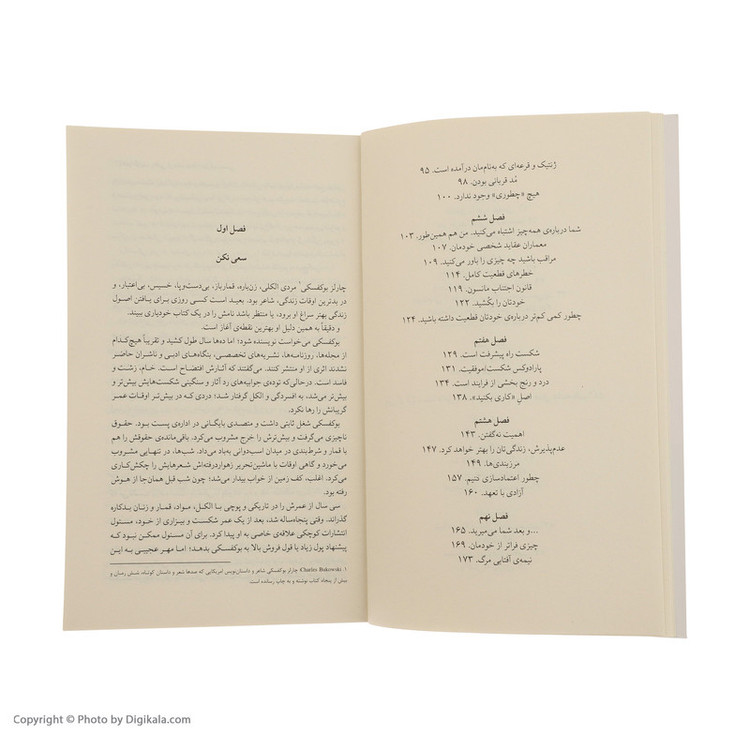 ژنتیک و قرعه‌ای که به‌نام‌مان درآمده است. ۹۵
مُد قربانی بودن. ۹۸
هیچ «چطوری» وجود ندارد. ۱۰۰
فصل ششم
شما درباره‌ی همه‌چیز اشتباه می‌کنید. من هم همین‌طور. ۱۰۳
معماران عقاید شخصی خودمان. ۱۰۷
مراقب باشید چه چیزی را باور می‌کنید. ۱۰۹
خطرهای قطعیت کامل. ۱۱۴
قانون اجتناب مانسون. ۱۱۹
خودتان را بکُشید. ۱۲۲
چطور کمی کم‌تر درباره‌ی خودتان قطعیت داشته باشید. ۱۲۴
فصل هفتم
شکست راه پیشرفت است. ۱۲۹
پارادوکس شکست/موفقیت. ۱۳۱
درد و رنج بخشی از فرایند است. ۱۳۴
اصلِ «کاری بکنید». ۱۳۸
فصل هشتم
اهمیت نه‌گفتن. ۱۴۳
عدم‌پذیرش، زندگی‌تان را بهتر خواهد کرد. ۱۴۷
مرزبندی‌ها. ۱۴۹
چطور اعتمادسازی کنیم. ۱۵۷
آزادی با تعهد. ۱۶۰
فصل نهم
...و بعد شما می‌میرید. ۱۶۵
چیزی فراتر از خودمان. ۱۶۹
نیمه‌ی آفتابی مرگ. ۱۷۳
فصل اول
سعی نکن
چارلز بوکفسکی۱ مردی الکلی، زن‌باره، قمارباز، بی‌دست‌وپا، خسیس، بی‌اعتبار، و
در بدترین اوقات زندگی، شاعر بود. بعید است کسی روزی برای یافتن اصول
زندگی بهتر سراغ او برود، یا منتظر باشد نامش را در یک کتاب خودیاری ببیند.
و دقیقاً به همین دلیل او بهترین نقطه‌ی آغاز است.
بوکفسکی می‌خواست نویسنده شود؛ اما ده‌ها سال طول کشید و تقریباً هیچ‌کدام
از مجله‌ها، روزنامه‌ها، نشریه‌های تخصصی، بنگاه‌های ادبی و ناشران حاضر
نشدند اثری از او منتشر کنند. می‌گفتند که آثارش افتضاح است. خام، زشت و
فاسد. درحالی‌که توده‌ی جوابیه‌های رد آثار و سنگینی شکست‌هایش بیش‌تر و
بیش‌تر می‌شد، به افسردگی و الکل گرفتار شد؛ دردی که در بیش‌تر اوقات عمر
گریبانش را رها نکرد.
بوکفسکی شغل ثابتی داشت و متصدی بایگانی در اداره‌ی پست بود. حقوق
ناچیزی می‌گرفت و بیش‌ترش را خرج مشروب می‌کرد. باقی‌مانده‌ی حقوقش را هم
با قمار و شرط‌بندی در میدان اسب‌دوانی به‌باد می‌داد. شب‌ها، در تنهایی مشروب
می‌خورد و گاهی اوقات با ماشین‌تحریر زهواردررفته‌اش شعرهایش را چکش‌کاری
می‌کرد. اغلب، کف زمین از خواب بیدار می‌شد؛ چون شب قبل همان‌جا از هوش
رفته بود.
سی سال از عمرش را در تاریکی و پوچی با الکل، مواد، قمار و زنان بدکاره
گذراند. وقتی پنجاه‌ساله شد، بعد از یک عمر شکست و بیزاری از خود، مسئول
انتشارات کوچکی علاقه‌ی خاصی به او پیدا کرد. برای آن مسئول ممکن نبود که
پیشنهاد پول زیاد یا قول فروش بالا به بوکفسکی بدهد؛ اما مهر عجیبی به این
۱. Charles Bukowski چارلز بوکفسکی شاعر و داستان‌نویس امریکایی که صدها شعر و داستان کوتاه، شش رمان و
بیش از پنجاه کتاب نوشته و به چاپ رسانده است.
Copyright © Photo by Digikala.com